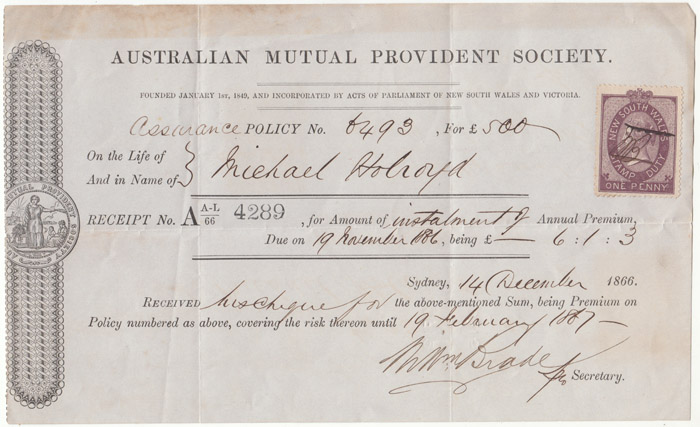 AUSTRALIAN MUTUAL PROVIDENT SOCIETY.
FOUNDED JANUARY 1ST, 1849, AND INCORPORATED BY ACTS OF PARLIAMENT OF NEW SOUTH WALES AND VICTORIA.
Assurance POLICY No. 6493, For £ 500
On the Life of
And in Name of } Michael Holroyd
RECEIPT No. A A-L/66 4289, for Amount of instalment of Annual Premium,
Due on 19 November 1866, being £ — 6:1:3
Sydney, 14 December 1866.
RECEIVED his cheque for the above-mentioned Sum, being Premium on
Policy numbered as above, covering the risk thereon until 19 February 1867 —
Secretary.
NEW SOUTH WALES
STAMP DUTY
ONE PENNY
MUTUAL PROVIDENT SOCIETY